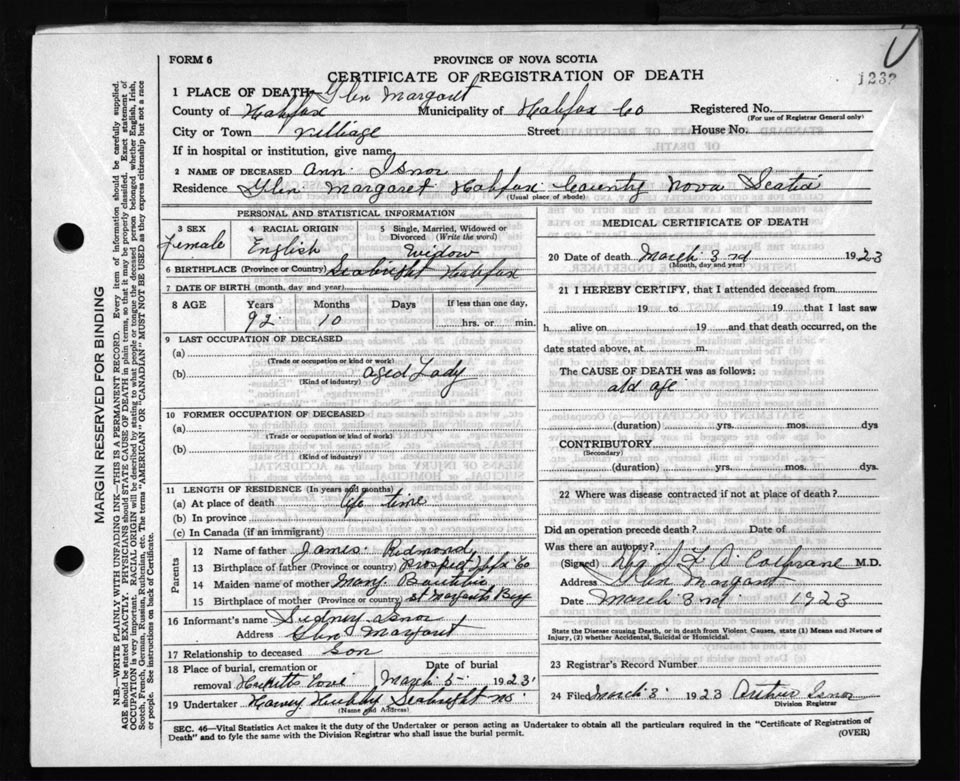 FORM 6
PROVINCE OF NOVA SCOTIA
CERTIFICATE OF REGISTRATION OF DEATH
1232
1 PLACE OF DEATH— Glen Margaret
County of Halifax Municipality of Halifax Co Registered No.
(For use of Registrar General only)
City or Town villiage Street House No.
If in hospital or institution, give name
2 NAME OF DECEASED Ann Isnor
Residence Glen Margaret Halifax County Nova Scotia
(Usual place of abode)
PERSONAL AND STATISTICAL INFORMATION
3 SEX 4 RACIAL ORIGIN 5 Single, Married, Widowed or
Divorced (Write the word)
Female English Widow
6 BIRTHPLACE (Province or Country) Seabright Halifax
7 DATE OF BIRTH (month, day and year)
8 AGE Years Months Days If less than one day,
92 10 hrs. or min.
9 LAST OCCUPATION OF DECEASED
(a)
(Trade or occupation or kind or work)
(b) aged Lady
(Kind of industry)
10 FORMER OCCUPATION OF DECEASED
(a)
(Trade or occupation or kind of work)
(b)
(Kind of industry)
11 LENGTH OF RESIDENCE (In years and months)
(a) At place of death life time
(b) In province
(c) In Canada (if an immigrant)
Parents
12 Name of father James Redmond
13 Birthplace of father (Province or country) Prospect Hfx Co
14 Maiden name of mother Mary
15 Birthplace of mother (Province or country) St Margarets Bay
16 Informant's name Sidney Isnor
Address Glen Margaret
17 Relationship to deceased Son
18 Place of burial, cremation or Date of burial
removal Hacketts Cove March 5 1923
19 Undertaker Harvey Hubley Seabright NS
(Name and Address)
MEDICAL CERTIFICATE OF DEATH
20 Date of death March 3rd 1923
(Month, day and year)
21 I HEREBY CERTIFY, that I attended deceased from
19 to 19 that I last saw
h alive on 19 and that death occurred, on the
date stated above, at m.
The CAUSE OF DEATH was as follows:
old age
(duration) yrs. mos. dys
CONTRIBUTORY
(Secondary)
(duration) yrs. mos. dys.
22 Where was disease contracted if not at place of death?
Did an operation precede death? Date of
Was there an autopsy?
(Signed) J F A Cochrane M.D.
Address Glen Margaret
Date March 3rd 1923
State the Disease causing Death, or in death from Violent Causes, state (1) Means and Nature of
Injury, (2) whether Accidental, Suicidal or Homicidal.
23 Registrar's Record Number
24 Filed March 3 1923 Arthur Isnor
Division Registrar
SEC. 46—Vital Statistics Act makes it the duty of the Undertaker or person acting as Undertaker to obtain all the particulars required in the "Certificate of Registration of
Death" and to fyle the same with the Division Registrar who shall issue the burial permit.
(OVER)
MARGIN RESERVED FOR BINDING
N.B.—WRITE PLAINLY WITH UNFADING INK—THIS IS A PERMANENT RECORD. Every item of information should be carefully supplied.
AGE should be stated EXACTLY. PHYSICIANS should STATE CAUSE OF DEATH in plain terms, so that it may be properly classified. Exact statement of
OCCUPATION is very important. RACIAL ORIGIN will be described by stating to what people or tongue the deceased person belonged whether English, Irish,
Scotch, French, German, Russian, Ruthenian, etc. The terms "AMERICAN" OR "CANADIAN" MUST NOT BE USED as they express citizenship but not a race
or people. See instructions on back of Certificate.